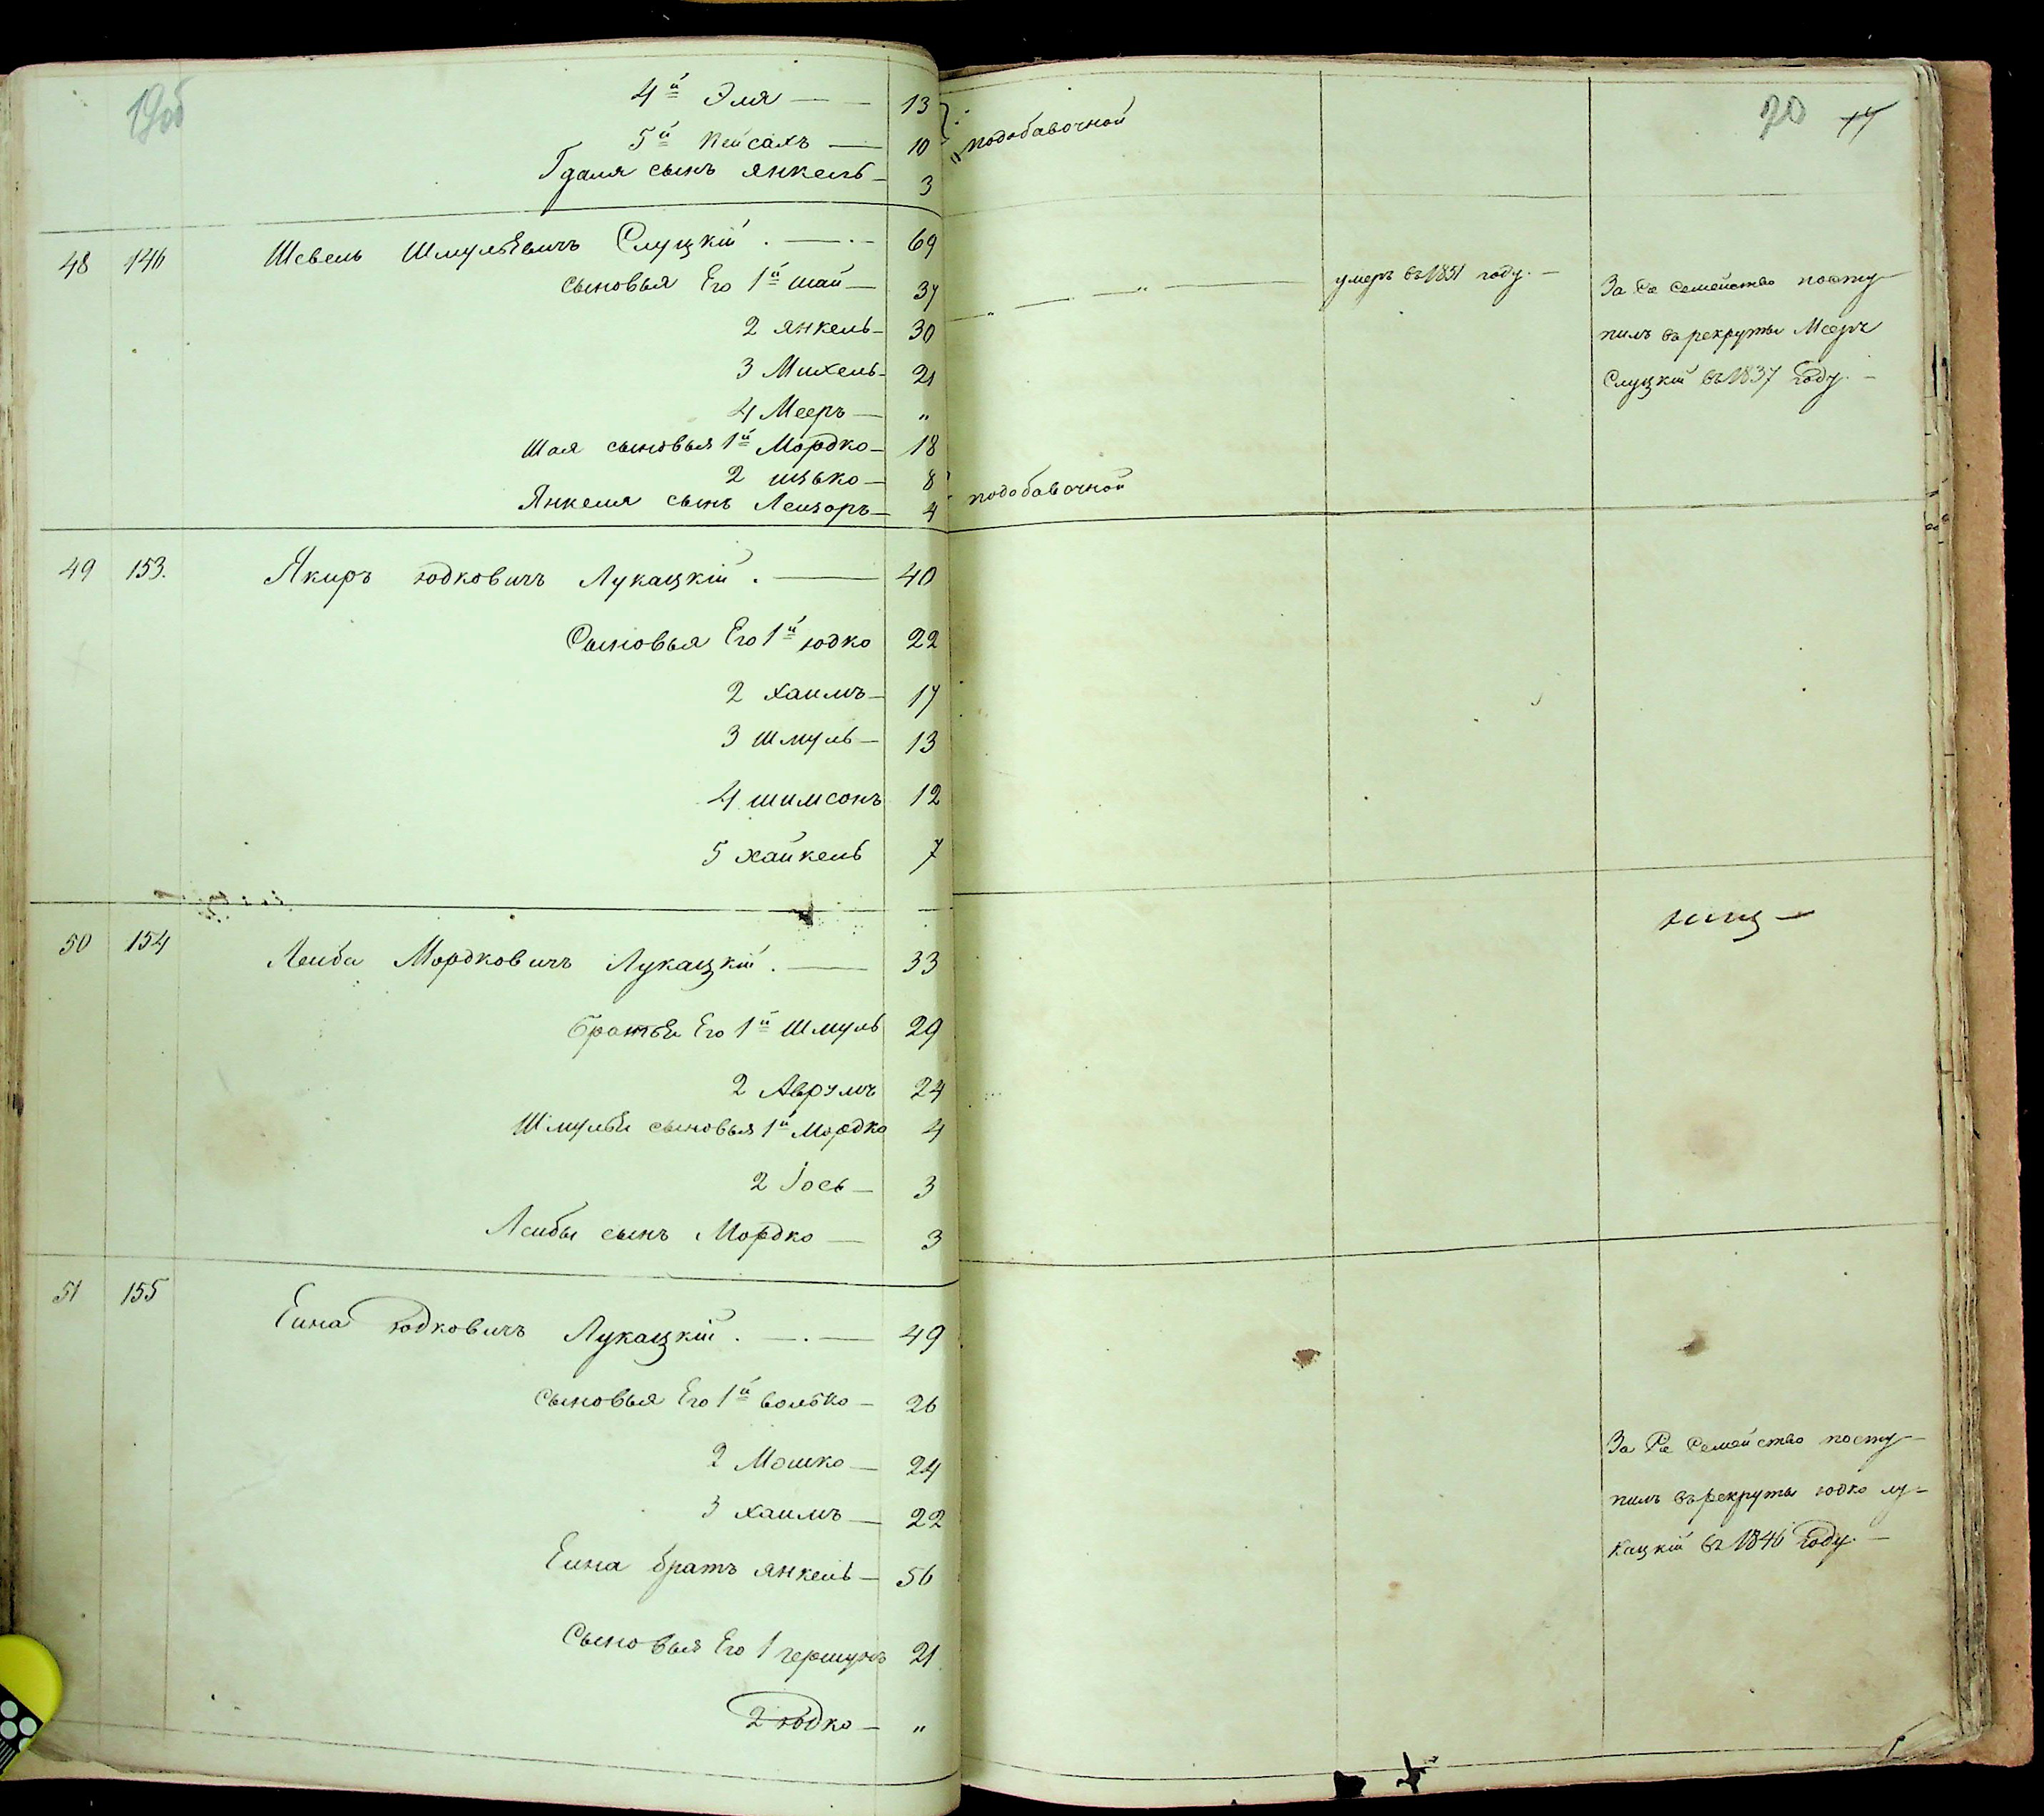 19об
4й Эля — — 13
5й Пейсахъ — 10
Гдаля сынъ Янкель — 3
48 146 Шевель Шмульевичъ Слуцкій . — . — 69
сыновья Его 1й Шай — 37
2 Янкель — 30
3 Михель — 21
4 Мееръ — „
Шая сыновья 1й Мордко — 18
2 Ицько — 8
Янкеля сынъ Лейзоръ — 4
49 153. Якиръ Юдковичъ Лукацкій . — 40
Сыновья Его 1й Юдко 22
2 Хаимъ — 17
3 Шмуль — 13
4 Шимсонъ 12
5 Хайкель 7
50 154 Лейба Мордковичъ Лукацкій . — 33
братья Его 1й Шмуль 29
2 Аврумъ 24
Шмуля сыновья 1й Мордко 4
2 Іось — 3
Лейбы сынъ Мордко — 3
51 155 Еина Юдковичъ Лукацкій . — . — 49
Сыновья Его 1й Волько — 26
2 Мошко — 24
3 Хаимъ — 22
Еина братъ Янкель — 56
Сыновья Его 1 Гершунъ 21
2 Юдко — „
20 17
подобавочной
— „ — умеръ въ 1851 году. —
За се семейство посту-
пилъ въ рекруты Мееръ
Слуцкій въ 1837 Году. —
подобавочной
За Се Семейство посту-
пилъ въ рекруты Юдко Лу-
кацкій въ 1846 Году. —